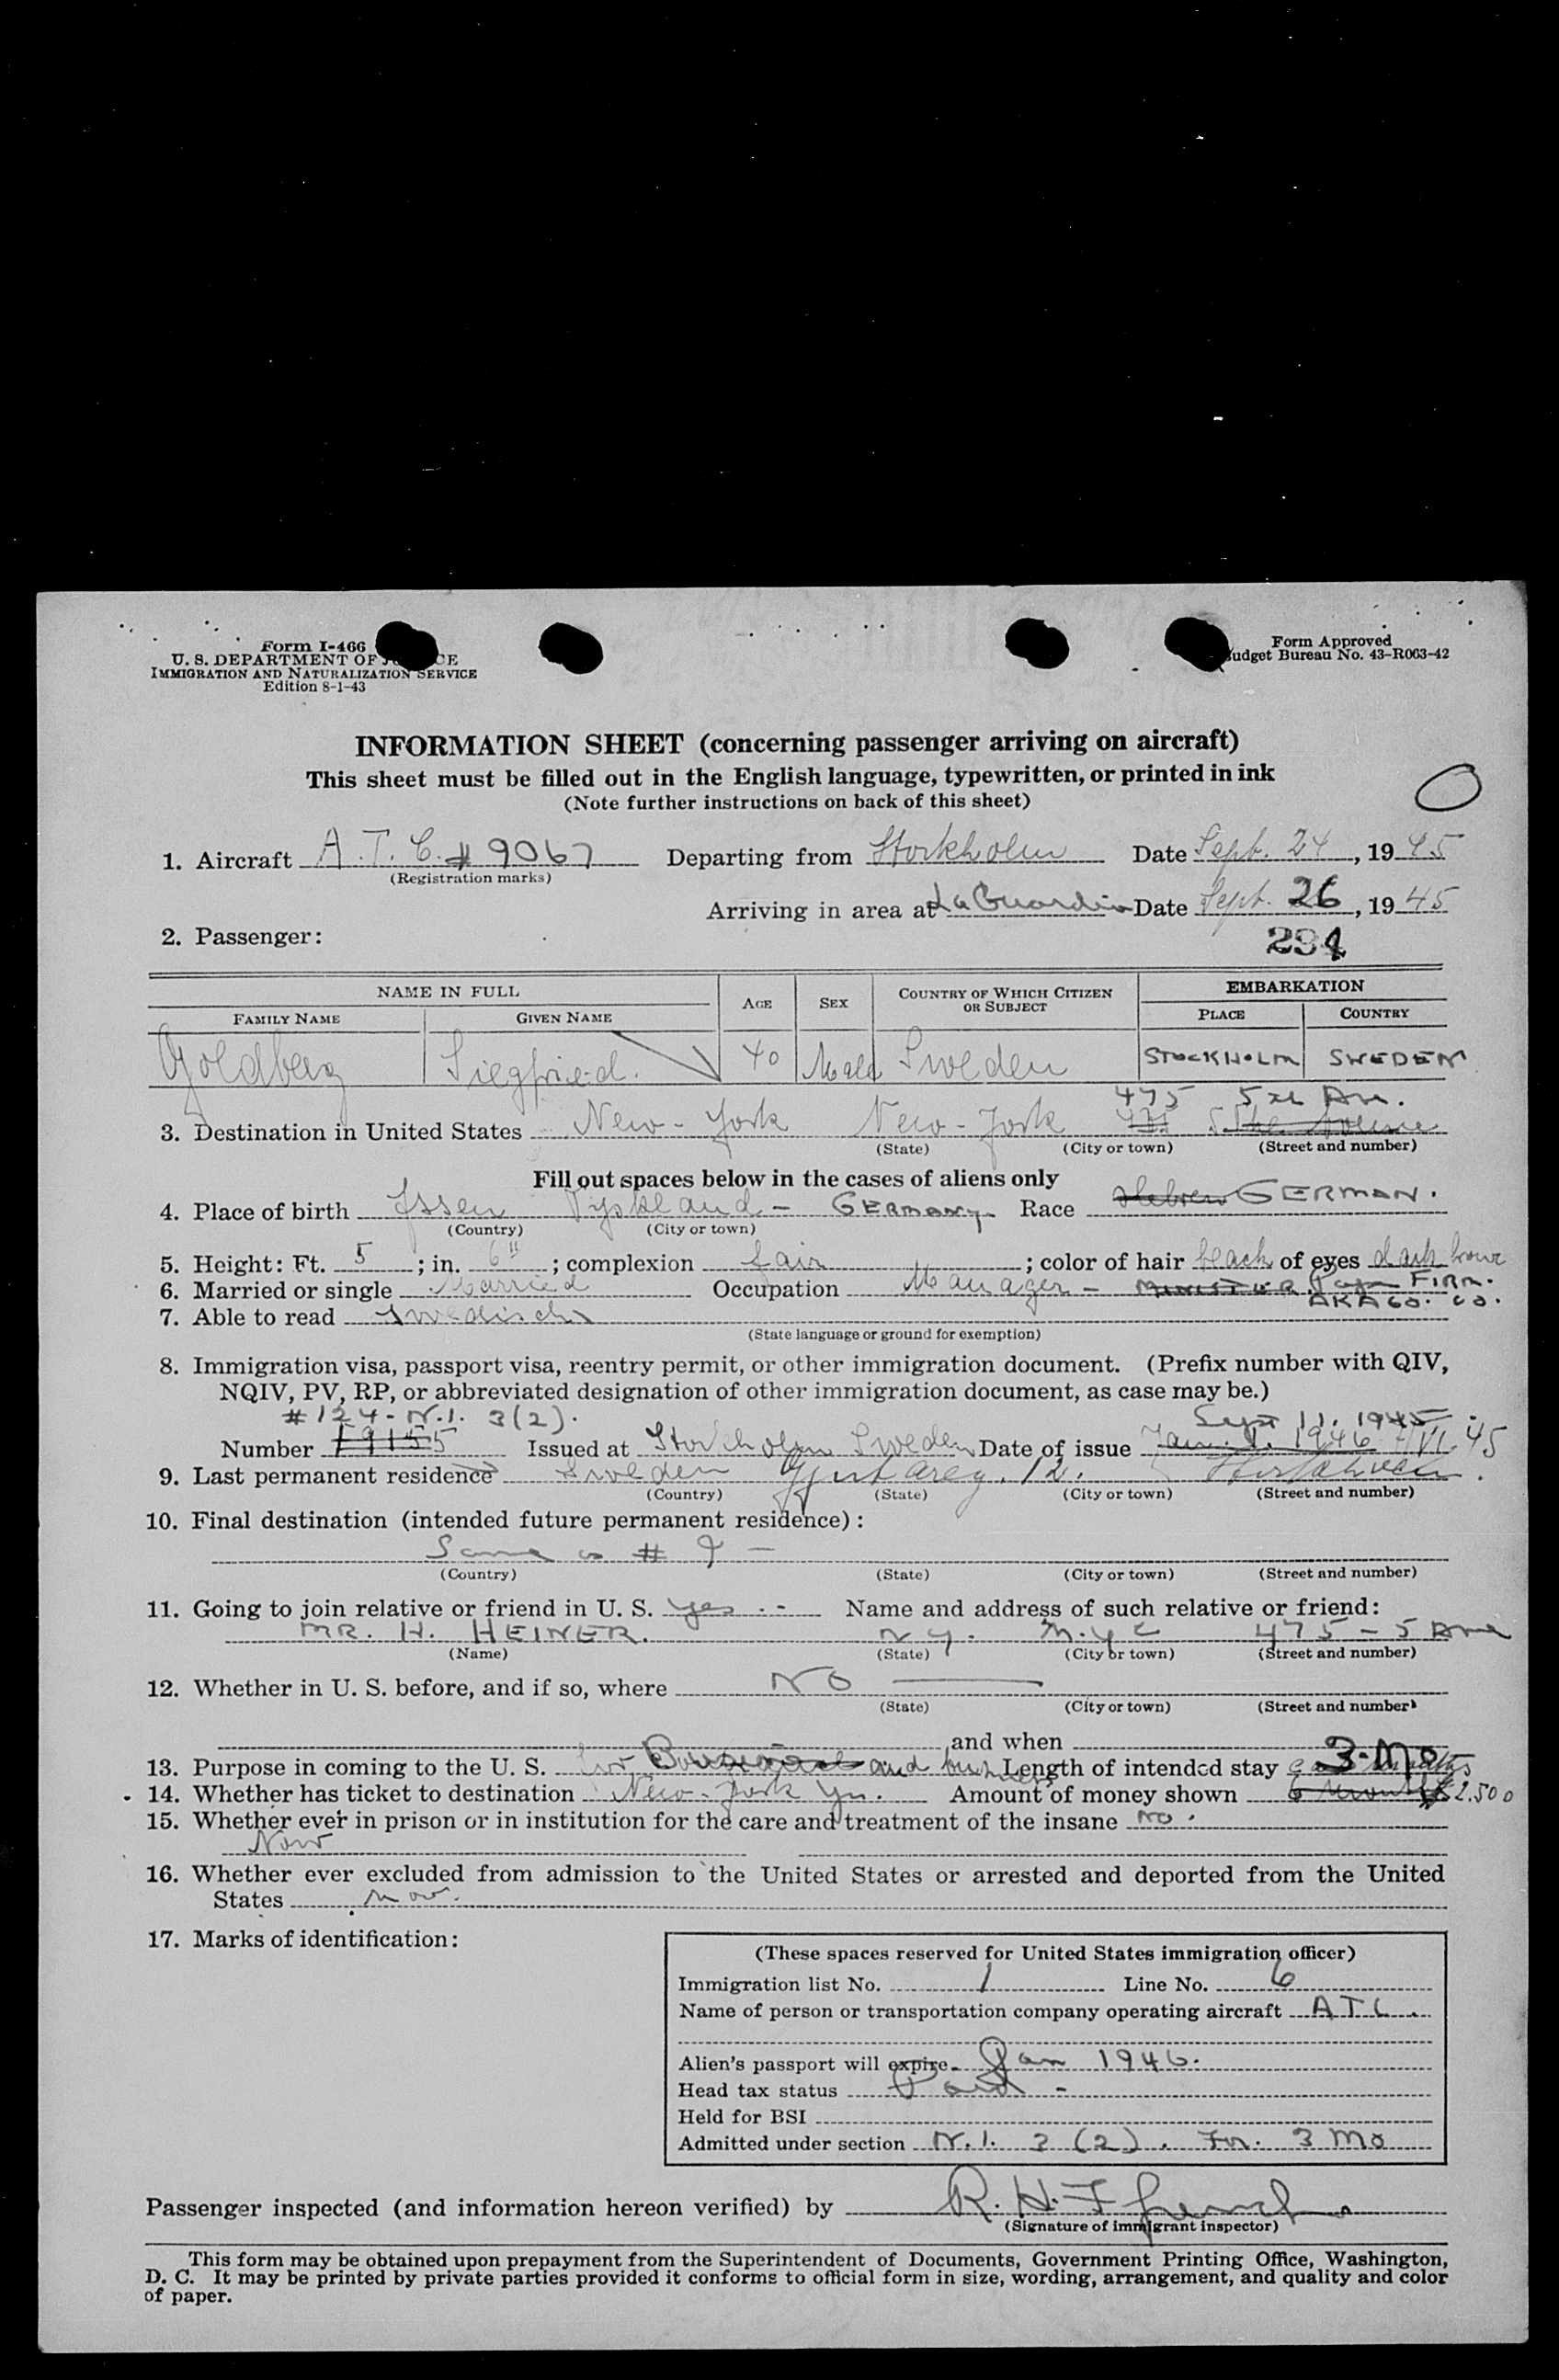 Form I-466
U. S. DEPARTMENT OF J CE
IMMIGRATION AND NATURALIZATION SERVICE
Edition 8-1-43
Form Approved
udget Bureau No. 43-R063-42
INFORMATION SHEET (concerning passenger arriving on aircraft)
This sheet must be filled out in the English language, typewritten, or printed in ink
(Note further instructions on back of this sheet)
1. Aircraft A.T.C. # 9067 Departing from Stockholm Date Sept. 24, 1945
(Registration marks)
Arriving in area at La Guardia Date Sept. 26, 1945
2. Passenger: 294
NAME IN FULL AGE SEX COUNTRY OF WHICH CITIZEN OR SUBJECT EMBARKATION
FAMILY NAME GIVEN NAME PLACE COUNTRY
Goldberg Siegfried. 40 Male Sweden STOCKHOLM SWEDEN
475 5th Av.
3. Destination in United States New-York New-York
(State) (City or town) (Street and number)
Fill out spaces below in the cases of aliens only
4. Place of birth Essen Tyskland - GERMANY Race Hebrew GERMAN.
(Country) (City or town)
5. Height: Ft. 5 ; in. 6" ; complexion fair ; color of hair black of eyes dark brown
6. Married or single Married Occupation Manager - FIRM.
AKA CO. CO.
7. Able to read Swedisch
(State language or ground for exemption)
8. Immigration visa, passport visa, reentry permit, or other immigration document. (Prefix number with QIV,
NQIV, PV, RP, or abbreviated designation of other immigration document, as case may be.)
# 124 - N.I. 3(2). Sept 11. 1945
Number 19155 Issued at Stockholm Sweden Date of issue Jan. 1. 1946
9. Last permanent residence Sweden 12.
(Country) (State) (City or town) (Street and number)
10. Final destination (intended future permanent residence):
Same as # 9 -
(Country) (State) (City or town) (Street and number)
11. Going to join relative or friend in U. S. Yes Name and address of such relative or friend:
MR. H. HEINER. N Y. N.Y C 475 - 5 Ave
(Name) (State) (City or town) (Street and number)
12. Whether in U. S. before, and if so, where NO
(State) (City or town) (Street and number)
and when
13. Purpose in coming to the U. S. and business Length of intended stay 3-Mo
14. Whether has ticket to destination New-York Amount of money shown 6 Months $2.500
15. Whether ever in prison or in institution for the care and treatment of the insane No.
Now
16. Whether ever excluded from admission to the United States or arrested and deported from the United
States now.
17. Marks of identification:
(These spaces reserved for United States immigration officer)
Immigration list No. 1 Line No. 6
Name of person or transportation company operating aircraft ATC.
Alien's passport will expire Jan 1946.
Head tax status Paid -
Held for BSI
Admitted under section N.I. 3 (2). For. 3 Mo
Passenger inspected (and information hereon verified) by R. H.
(Signature of immigrant inspector)
This form may be obtained upon prepayment from the Superintendent of Documents, Government Printing Office, Washington,
D. C. It may be printed by private parties provided it conforms to official form in size, wording, arrangement, and quality and color
of paper.